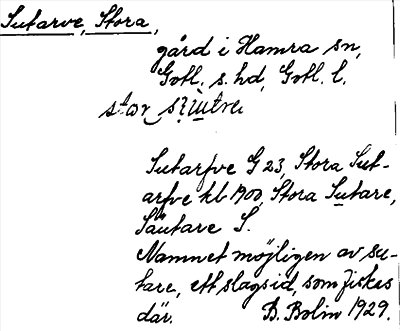 Sutarve, Stora,
gård i Hamra sn,
Gotl. s. hd, Gotl. l.
Sutarfve G 23, Stora Sut-
arfve kb 1900, Stora Sutare,
Säutare S.
Namnet möjligen av su-
tare, ett slags id, som fiskas
där. B. Bolin 1929.